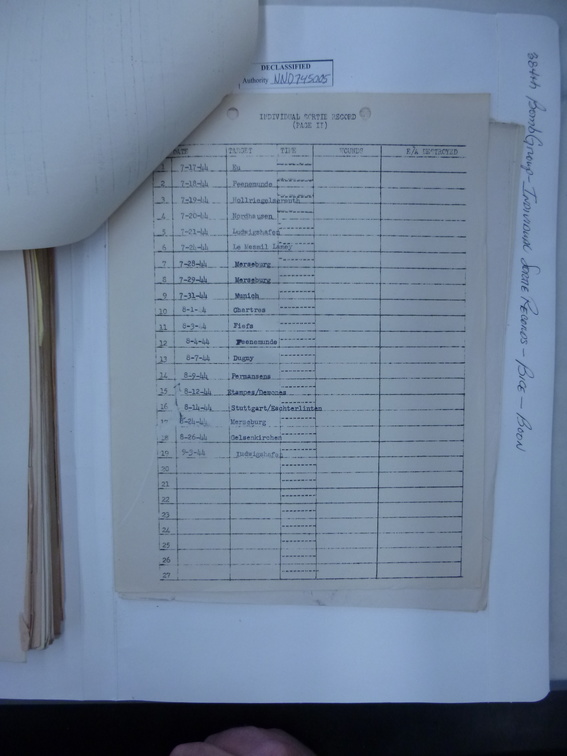 DECLASSIFIED
Authority NND745005
INDIVIDUAL SORTIE RECORD
(PAGE II)
DATE TARGET TIME WOUNDS E/A DESTROYED
1 7-17-44
2 7-18-44 Peenemunde
3 7-19-44 Hollriegelskreuth
4 7-20-44 Nordhausen
5 7-21-44 Ludwigshafen
6 Le Mesnil
7 7-28-44 Merseburg
8 7-29-44 Merseburg
9 7-31-44 Munich
10 8-1-44 Chartres
11 8-3-44 Fiefs
12 8-4-44 Peenemunde
13 8-7-44 Dugny
14 8-9-44 Permansens
15 8-12-44 Etampes/
16 8-14-44 Stuttgart/Echterlinten
17 8-24-44 Merseburg
18 8-26-44 Gelsenkirchen
19 9-3-44 Ludwigshafen
20
21
22
23
24
25
26
27
384th Bomb Group - Individual Sortie Records - Bice - Boon